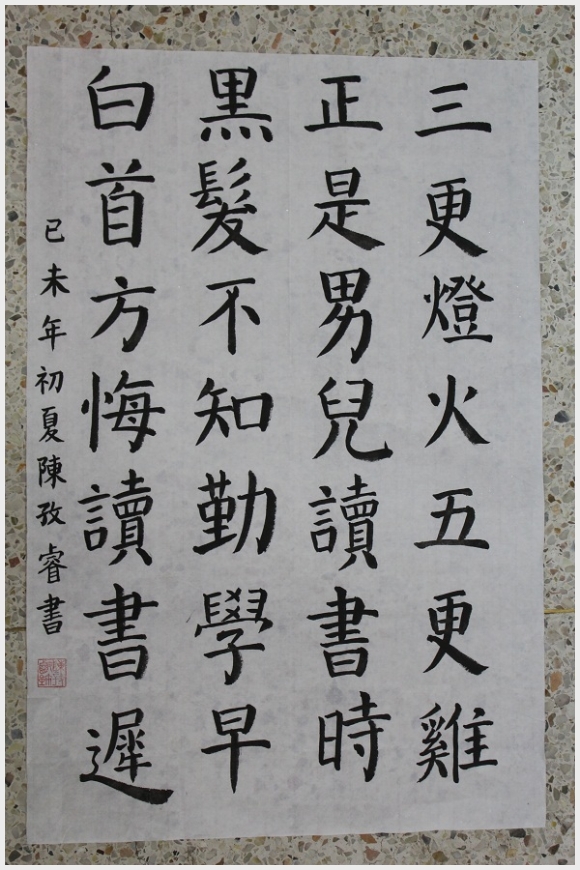 三更燈火五更雞
正是男兒讀書時
黑髮不知勤學早
白首方悔讀書遲
已未年初夏陳孜睿書